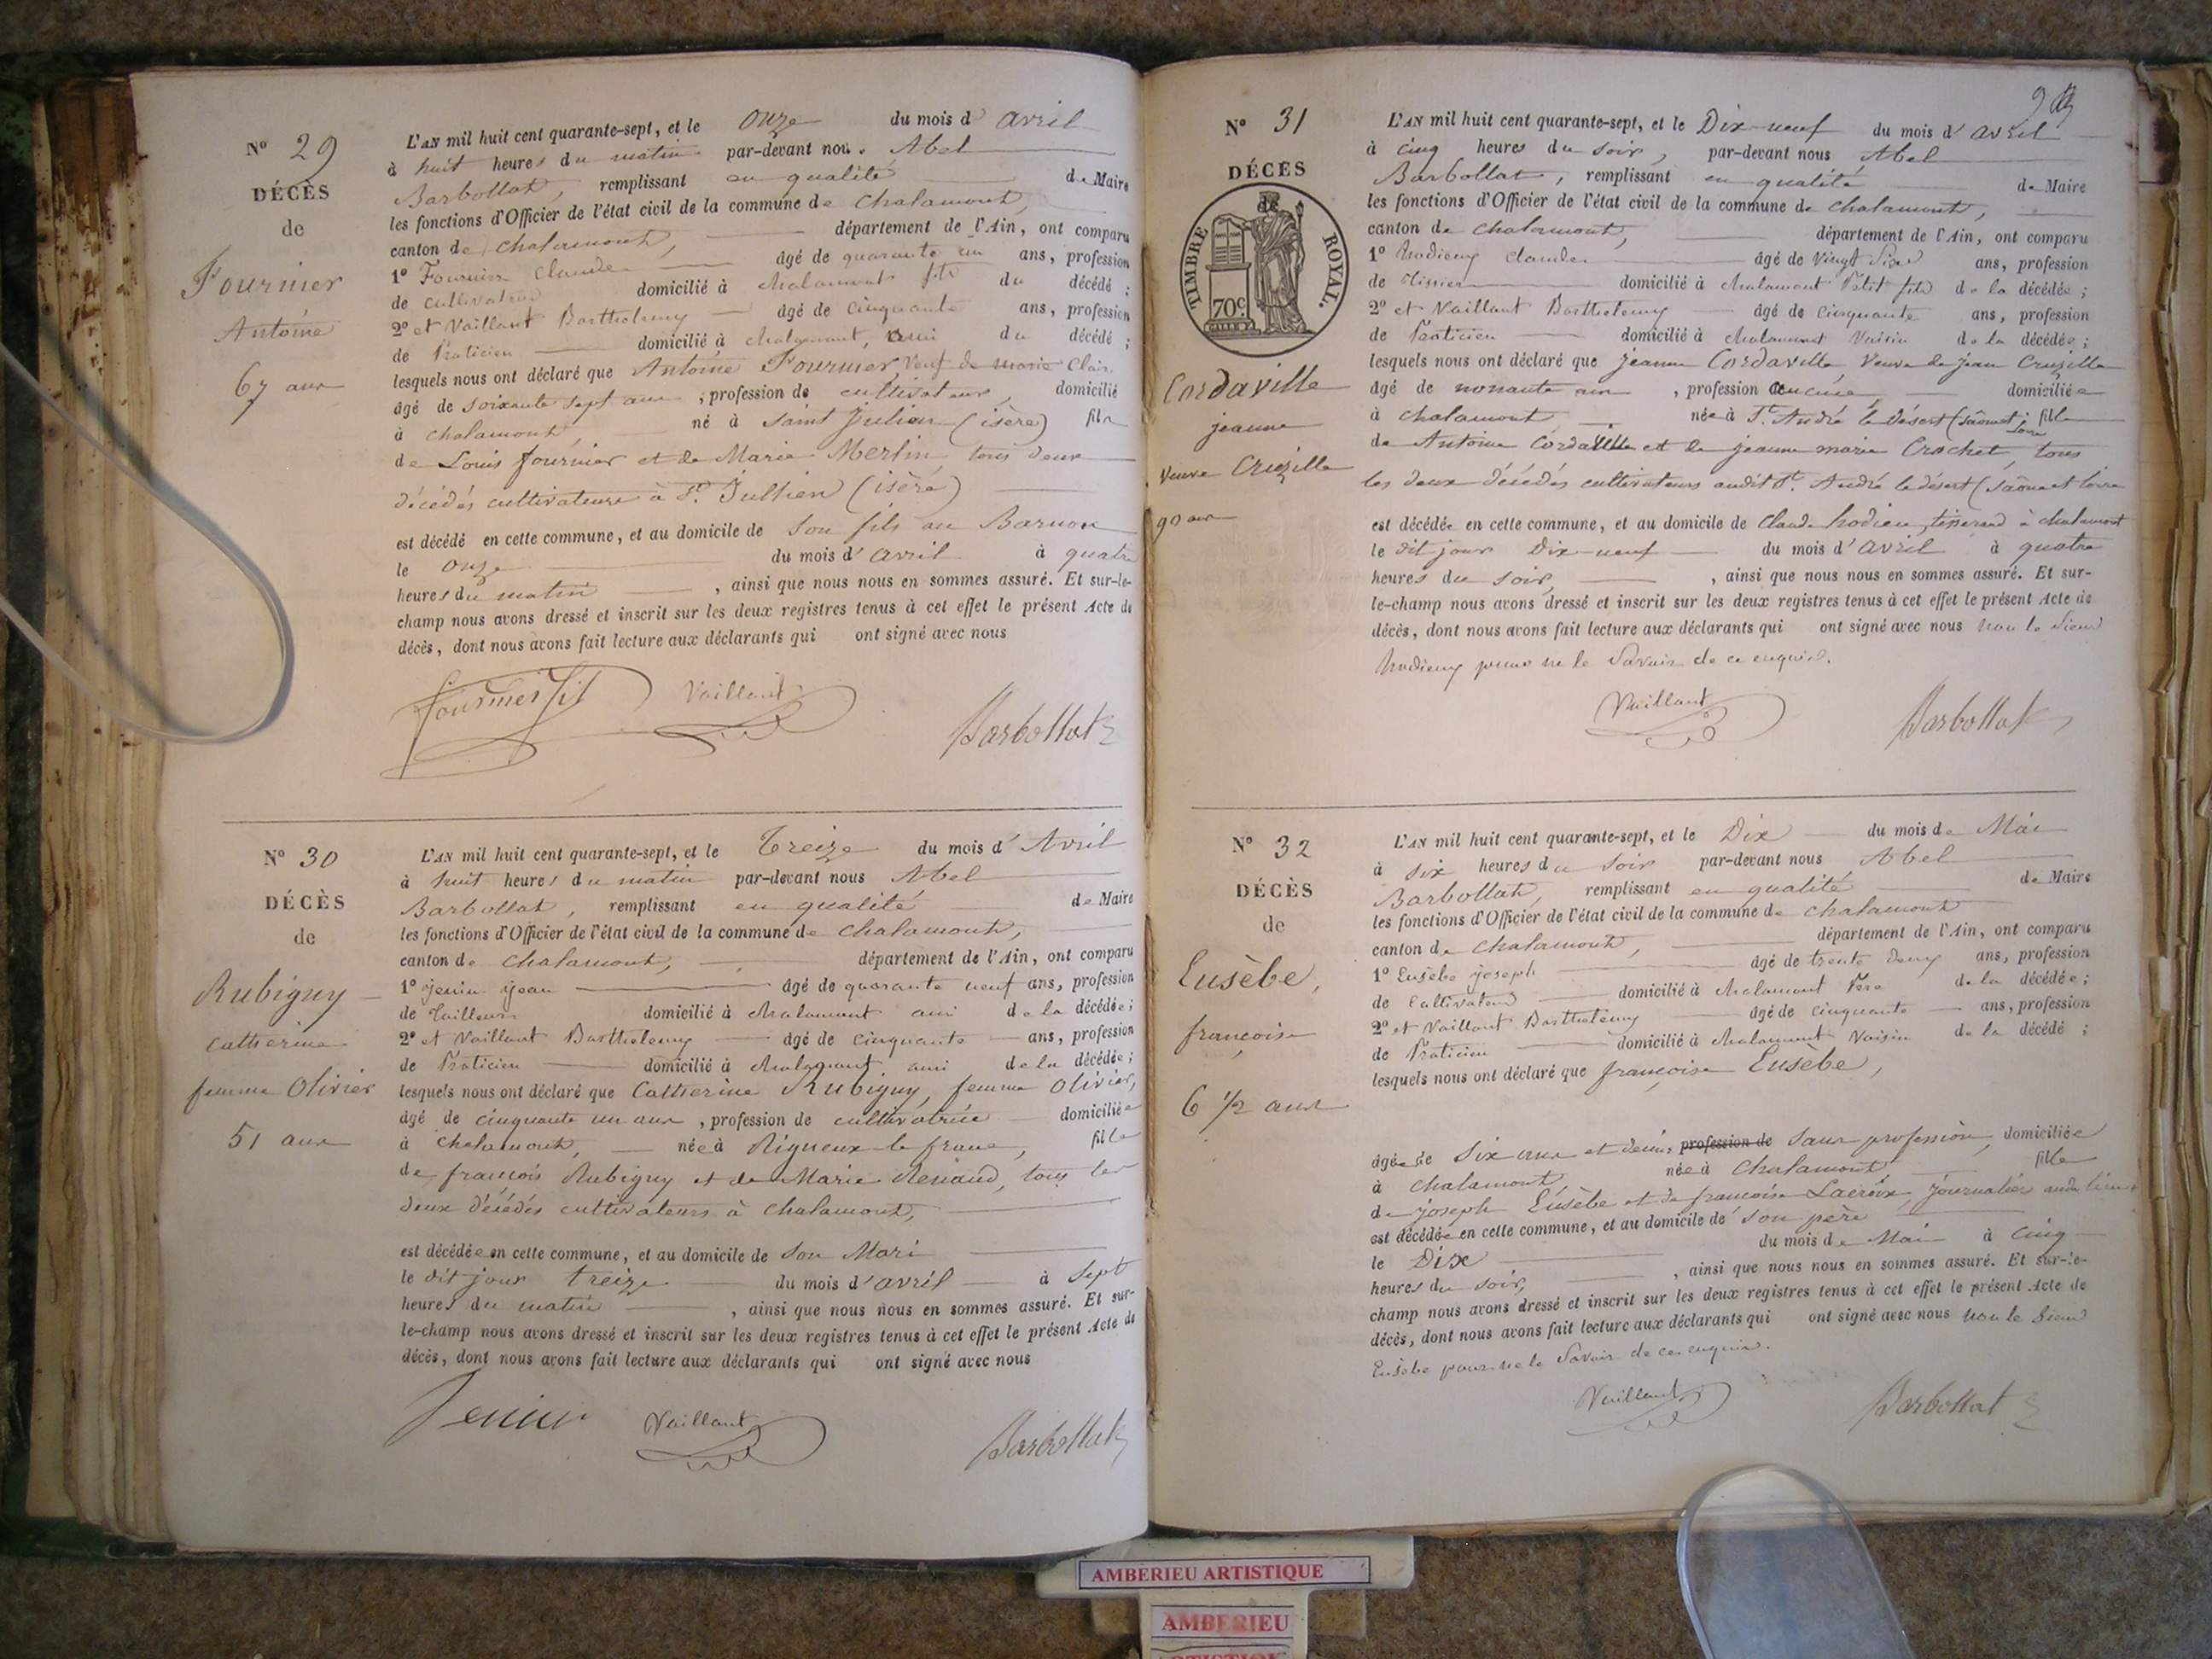 Nº 29
DÉCÈS
de
Fournier
Antoine
67 ans
L'AN mil huit cent quarante-sept, et le onze du mois d'avril
à huit heures du matin par-devant nous Abel
Barbollat, remplissant en qualité de Maire
les fonctions d'Officier de l'état civil de la commune de Chalamont,
canton de Chalamont, département de l'Ain, ont comparu
1º Fournier Claude âgé de quarante un ans, profession
de cultivateur domicilié à Chalamont fils du décédé ;
2º et Vaillant Barthelemy âgé de cinquante ans, profession
de Praticien domicilié à Chalamont, ami du décédé ;
lesquels nous ont déclaré que Antoine Fournier Veuf de marie Clair
âgé de soixante sept ans ; profession de cultivateur, domicilié
à chalamont, né à Saint Julien (isère) fils
de Louis fournier et de Marie Merlin, tous deux
décédés cultivateurs à St. Jullien (isère)
est décédé en cette commune, et au domicile de son fils au Barnon
le onze du mois d'avril à quatre
heures du matin , ainsi que nous nous en sommes assuré. Et sur-le-
champ nous avons dressé et inscrit sur les deux registres tenus à cet effet le présent Acte de
décès, dont nous avons fait lecture aux déclarants qui ont signé avec nous
fournier fils Vaillant Barbollat
Nº 30
DÉCÈS
de
Rubigny
catherine
femme Olivier
51 ans
L'AN mil huit cent quarante-sept, et le Treize du mois d'Avril
à huit heures du matin par-devant nous Abel
Barbollat, remplissant en qualité de Maire
les fonctions d'Officier de l'état civil de la commune de Chalamont,
canton de Chalamont, département de l'Ain, ont comparu
1º Jenin Jean âgé de quarante neuf ans, profession
de Tailleur domicilié à Chalamont ami de la décédée ;
2º et Vaillant Barthelemy âgé de cinquante ans, profession
de Praticien domicilié à Chalamont ami de la décédée ;
lesquels nous ont déclaré que Catherine Rubigny, femme Olivier,
âgé de cinquante un ans , profession de cultivatrice domiciliée
à Chalamont, née à Rigneux le franc, fille
de françois Rubigny et de Marie Renaud, tous les
deux décédés cultivateurs à Chalamont,
est décédée en cette commune, et au domicile de son Mari
le dit jour treize du mois d'avril à sept
heures du matin , ainsi que nous nous en sommes assuré. Et sur-
le-champ nous avons dressé et inscrit sur les deux registres tenus à cet effet le présent Acte de
décès, dont nous avons fait lecture aux déclarants qui ont signé avec nous
Jenin Vaillant Barbollat
Nº 31
DÉCÈS
de
TIMBRE ROYAL.
70c.
Cordaville
jeanne
veuve Cruzille
90 ans
L'AN mil huit cent quarante-sept, et le Dix-neuf du mois d'avril
à cinq heures du soir, par-devant nous Abel
Barbollat, remplissant en qualité de Maire
les fonctions d'Officier de l'état civil de la commune de Chalamont,
canton de Chalamont, département de l'Ain, ont comparu
1º Claude âgé de vingt six ans, profession
de Tissier domicilié à Chalamont Petit fils de la décédée ;
2º et Vaillant Barthelemy âgé de cinquante ans, profession
de Praticien domicilié à Chalamont Voisin de la décédée ;
lesquels nous ont déclaré que jeanne Cordaville, Veuve de jean Cruzille
âgé de nonante ans , profession aucune, domiciliée
à chalamont née à St. André le désert (Saône et Loire fille
de Antoine Cordaville et de jeanne marie Crochet, tous
les deux décédés cultivateurs audit St. André le désert (Saône et Loire
est décédée en cette commune, et au domicile de Claude tisserand à chalamont
le dit jour Dix-neuf du mois d'avril à quatre
heures du soir, , ainsi que nous nous en sommes assuré. Et sur-
le-champ nous avons dressé et inscrit sur les deux registres tenus à cet effet le présent Acte de
décès, dont nous avons fait lecture aux déclarants qui ont signé avec nous non le Sieur
pour ne le savoir de ce enquis.
Vaillant Barbollat
Nº 32
DÉCÈS
de
Eusèbe,
françoise
6 1/2 ans
L'AN mil huit cent quarante-sept, et le Dix du mois de Mai
à six heures du soir par-devant nous Abel
Barbollat, remplissant en qualité de Maire
les fonctions d'Officier de l'état civil de la commune de Chalamont
canton de Chalamont, département de l'Ain, ont comparu
1º Eusèbe joseph âgé de trente deux ans, profession
de Cultivateur domicilié à Chalamont Père de la décédée ;
2º et Vaillant Barthelemy âgé de cinquante ans, profession
de Praticien domicilié à Chalamont Voisin de la décédé ;
lesquels nous ont déclaré que françoise Eusèbe,
âgée de six ans et demi, profession de sans profession, domiciliée
à Chalamont, née à Chalamont fille
de joseph Eusèbe et de françoise Lacroix, journaliers
est décédée en cette commune, et au domicile de son père
le Dix du mois de Mai à cinq
heures du soir, , ainsi que nous nous en sommes assuré. Et sur-le-
champ nous avons dressé et inscrit sur les deux registres tenus à cet effet le présent Acte de
décès, dont nous avons fait lecture aux déclarants qui ont signé avec nous non le Sieur
Eusèbe pour ne le savoir de ce enquis.
Vaillant Barbollat
AMBERIEU ARTISTIQUE
AMBERIEU
ARTISTIQUE